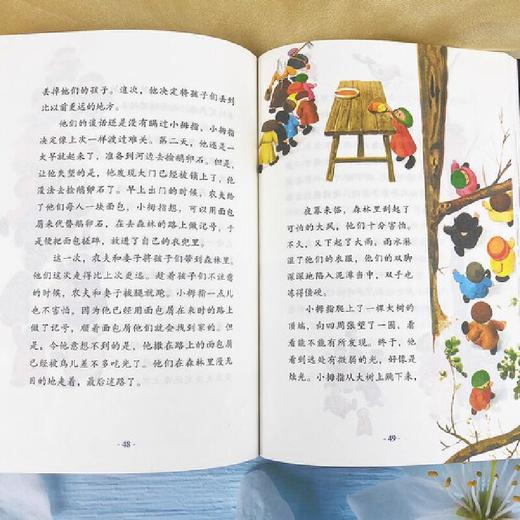 丢掉他们的孩子。这次，他决定将孩子们丢到
比以前更远的地方。
他们的谈话还是没有瞒过小拇指，小拇指
决定像上次一样渡过难关。第二天，他还是一
大早就起来了，准备到河边去拾鹅卵石。但是，
让他失望的是，他发现大门已经被锁上了，他
没法去拾鹅卵石了。早上出门的时候，农夫给
了他们每人一块面包，小拇指想，可以用面包
屑来代替鹅卵石，在去森林的路上做记号，于
是便把面包揉碎，放进了自己的衣兜里。
这一次，农夫和妻子将孩子们带到森林里，
他们这次走得比上次更远。趁着孩子们不注意
的时候，农夫和妻子拔腿就跑。小拇指一点儿
也不害怕，因为他已经用面包屑在来时的路上
做了记号，顺着面包屑他们就会找到家的。但
是，令他意想不到的是，他撒在路上的面包屑
已经被鸟儿差不多吃光了。他们在森林里漫无
目的地走着，最后迷路了。
·48·
夜幕来临，森林里刮起了
可怕的大风，他们十分害怕。
不久，又下起了大雨。雨水淋
湿了他们的衣服，他们的双脚
深深地陷入泥潭当中，双手也
冻得僵硬。
小拇指爬上了一棵大树的
顶端，向四周张望了一圈，看
看能不能有所发现。终于，他
看到远处有微弱的光，好像是
烛光。小拇指从大树上跳下来，
·49·